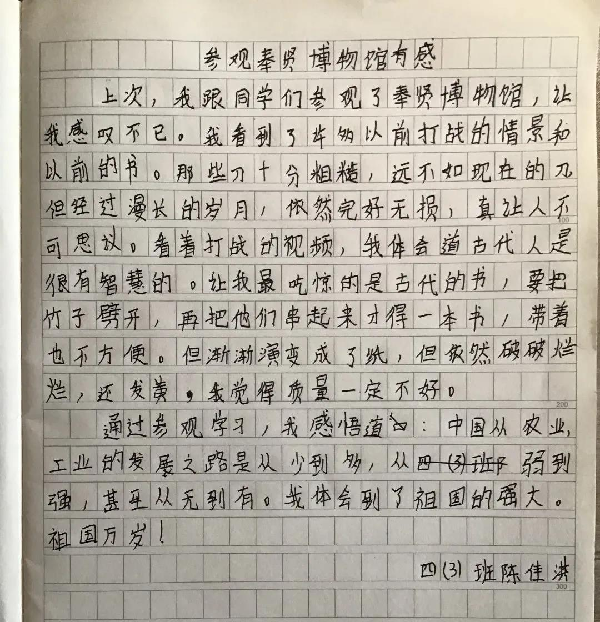 参观奉贤博物馆有感
上次，我跟同学们参观了奉贤博物馆，让
我感叹不已。我看到了许多以前打战的情景和
以前的书。那些刀十分粗糙，远不如现在的刀
但经过漫长的岁月，依然完好无损，真让人不
可思议。看着打战的视频，我体会道古代人是
很有智慧的。让我最吃惊的是古代的书，要把
竹子劈开，再把他们串起来才得一本书，带着
也不方便。但渐渐演变成了纸，但依然破破烂
烂，还发黄。我觉得质量一定不好。
通过参观学习，我感悟道：中国从农业，
工业的发展之路是从少到多，从四(3)班 弱到
强，甚至从无到有。我体会到了祖国的强大。
祖国万岁！
四(3)班陈佳洪
100
200
300